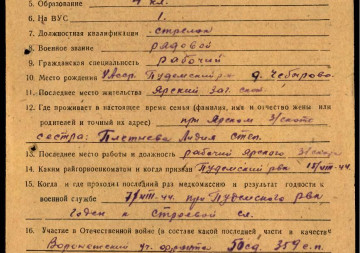 5. Образование 4 кл.
6. На ВУС 1.
7. Должностная квалификация стрелок
8. Военное звание рядовой
9. Гражданская специальность рабочий
10. Место рождения Удасср. Пудемский р-н д. Чебырово
11. Последнее место жительства Ярский заг. скот
12. Где проживает в настоящее время семья (фамилия, имя и отчество жены или
родителей и точный их адрес) при Ярском з/скоте
сестра: Плетнева Лидия Степ.
13. Последнее место работы и должность рабочий Ярского
14. Каким райгорвоенкоматом и когда призван Пудемский рвк 18/VIII-44.
15. Когда и где проходил последний раз медкомиссию и результат годности к
военной службе 7/VIII-44. при Пудемском рвк
Годен к строевой сл.
16. Участие в Отечественной войне (в составе какой последней части и в качестве
Воронежский уч. фронта 50сд. 359 с.п.